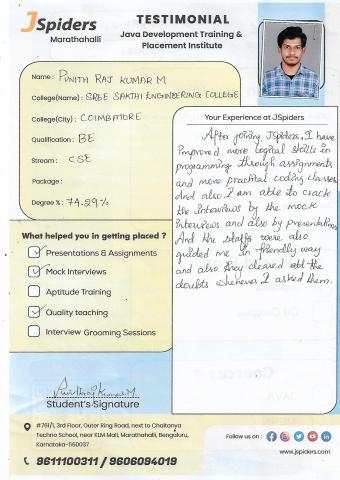 JSpiders
Marathahalli
TESTIMONIAL
Java Development Training &
Placement Institute
Name : PUNITH RAJ KUMAR M
College(Name) : SREE SAKTHI ENGINEERING COLLEGE
College(City) : COIMBATORE
Qualification : BE
Stream : CSE
Package :
Degree % : 74.29%
What helped you in getting placed ?
Presentations & Assignments
Mock Interviews
Aptitude Training
Quality teaching
Interview Grooming Sessions
Your Experience at JSpiders
After joining JSpiders, I have
improved more logical skills in
programming through assignments
and more practical coding classes
And also I am able to crack
the interviews by the mock
interviews and also by presentations
And the staffs were also
guided me in friendly way
and also they cleared all the
doubts whenever I asked them.
Punithraj Kumar M.
Student's Signature
#761/1, 3rd Floor, Outer Ring Road, next to Chaitanya
Techno School, near KLM Mall, Marathahalli, Bengaluru,
Karnataka-560037
9611100311 / 9606094019
Follow us on :
www.jspiders.com